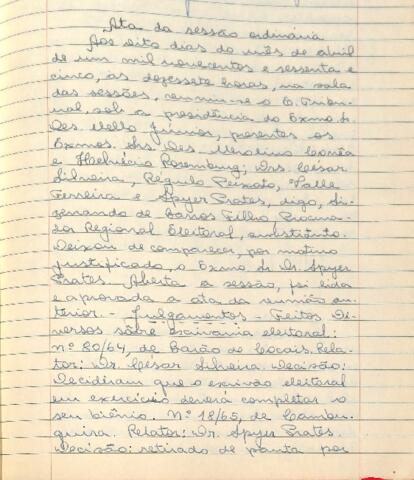 Ata da sessão ordinária
Aos oito dias do mês de abril
de um mil novecentos e sessenta e
cinco, às dezessete horas, na sala
das sessões, reuniu-se o E. Tribu-
nal, sob a presidência do Exmo. Sr.
Des. Mello Júnior, presentes os
Exmos. Srs. Des. Merolino Corrêa
e Helvécio Rosenburg, Drs. César
Silveira, Régulo Peixoto, Valle
Ferreira e Spyer Prates, digo,
de Barros Filho, Procura-
dor Regional Eleitoral, substituto.
Deixou de comparecer, por motivo
justificado, o Exmo. Sr. Dr. Spyer
Prates. Aberta a sessão, foi lida
e aprovada a ata da reunião an-
terior. - Julgamentos - Feitos Di-
versos sôbre escrivania eleitoral:
nº 80/64, de Barão de Cocais. Rela-
tor: Dr. César Silveira. Decisão:
Decidiram que o escrivão eleitoral
em exercício deverá completar o
seu biênio. Nº 18/65, de Cambu-
quira. Relator: Dr. Spyer Prates.
Decisão: retirado de pauta por